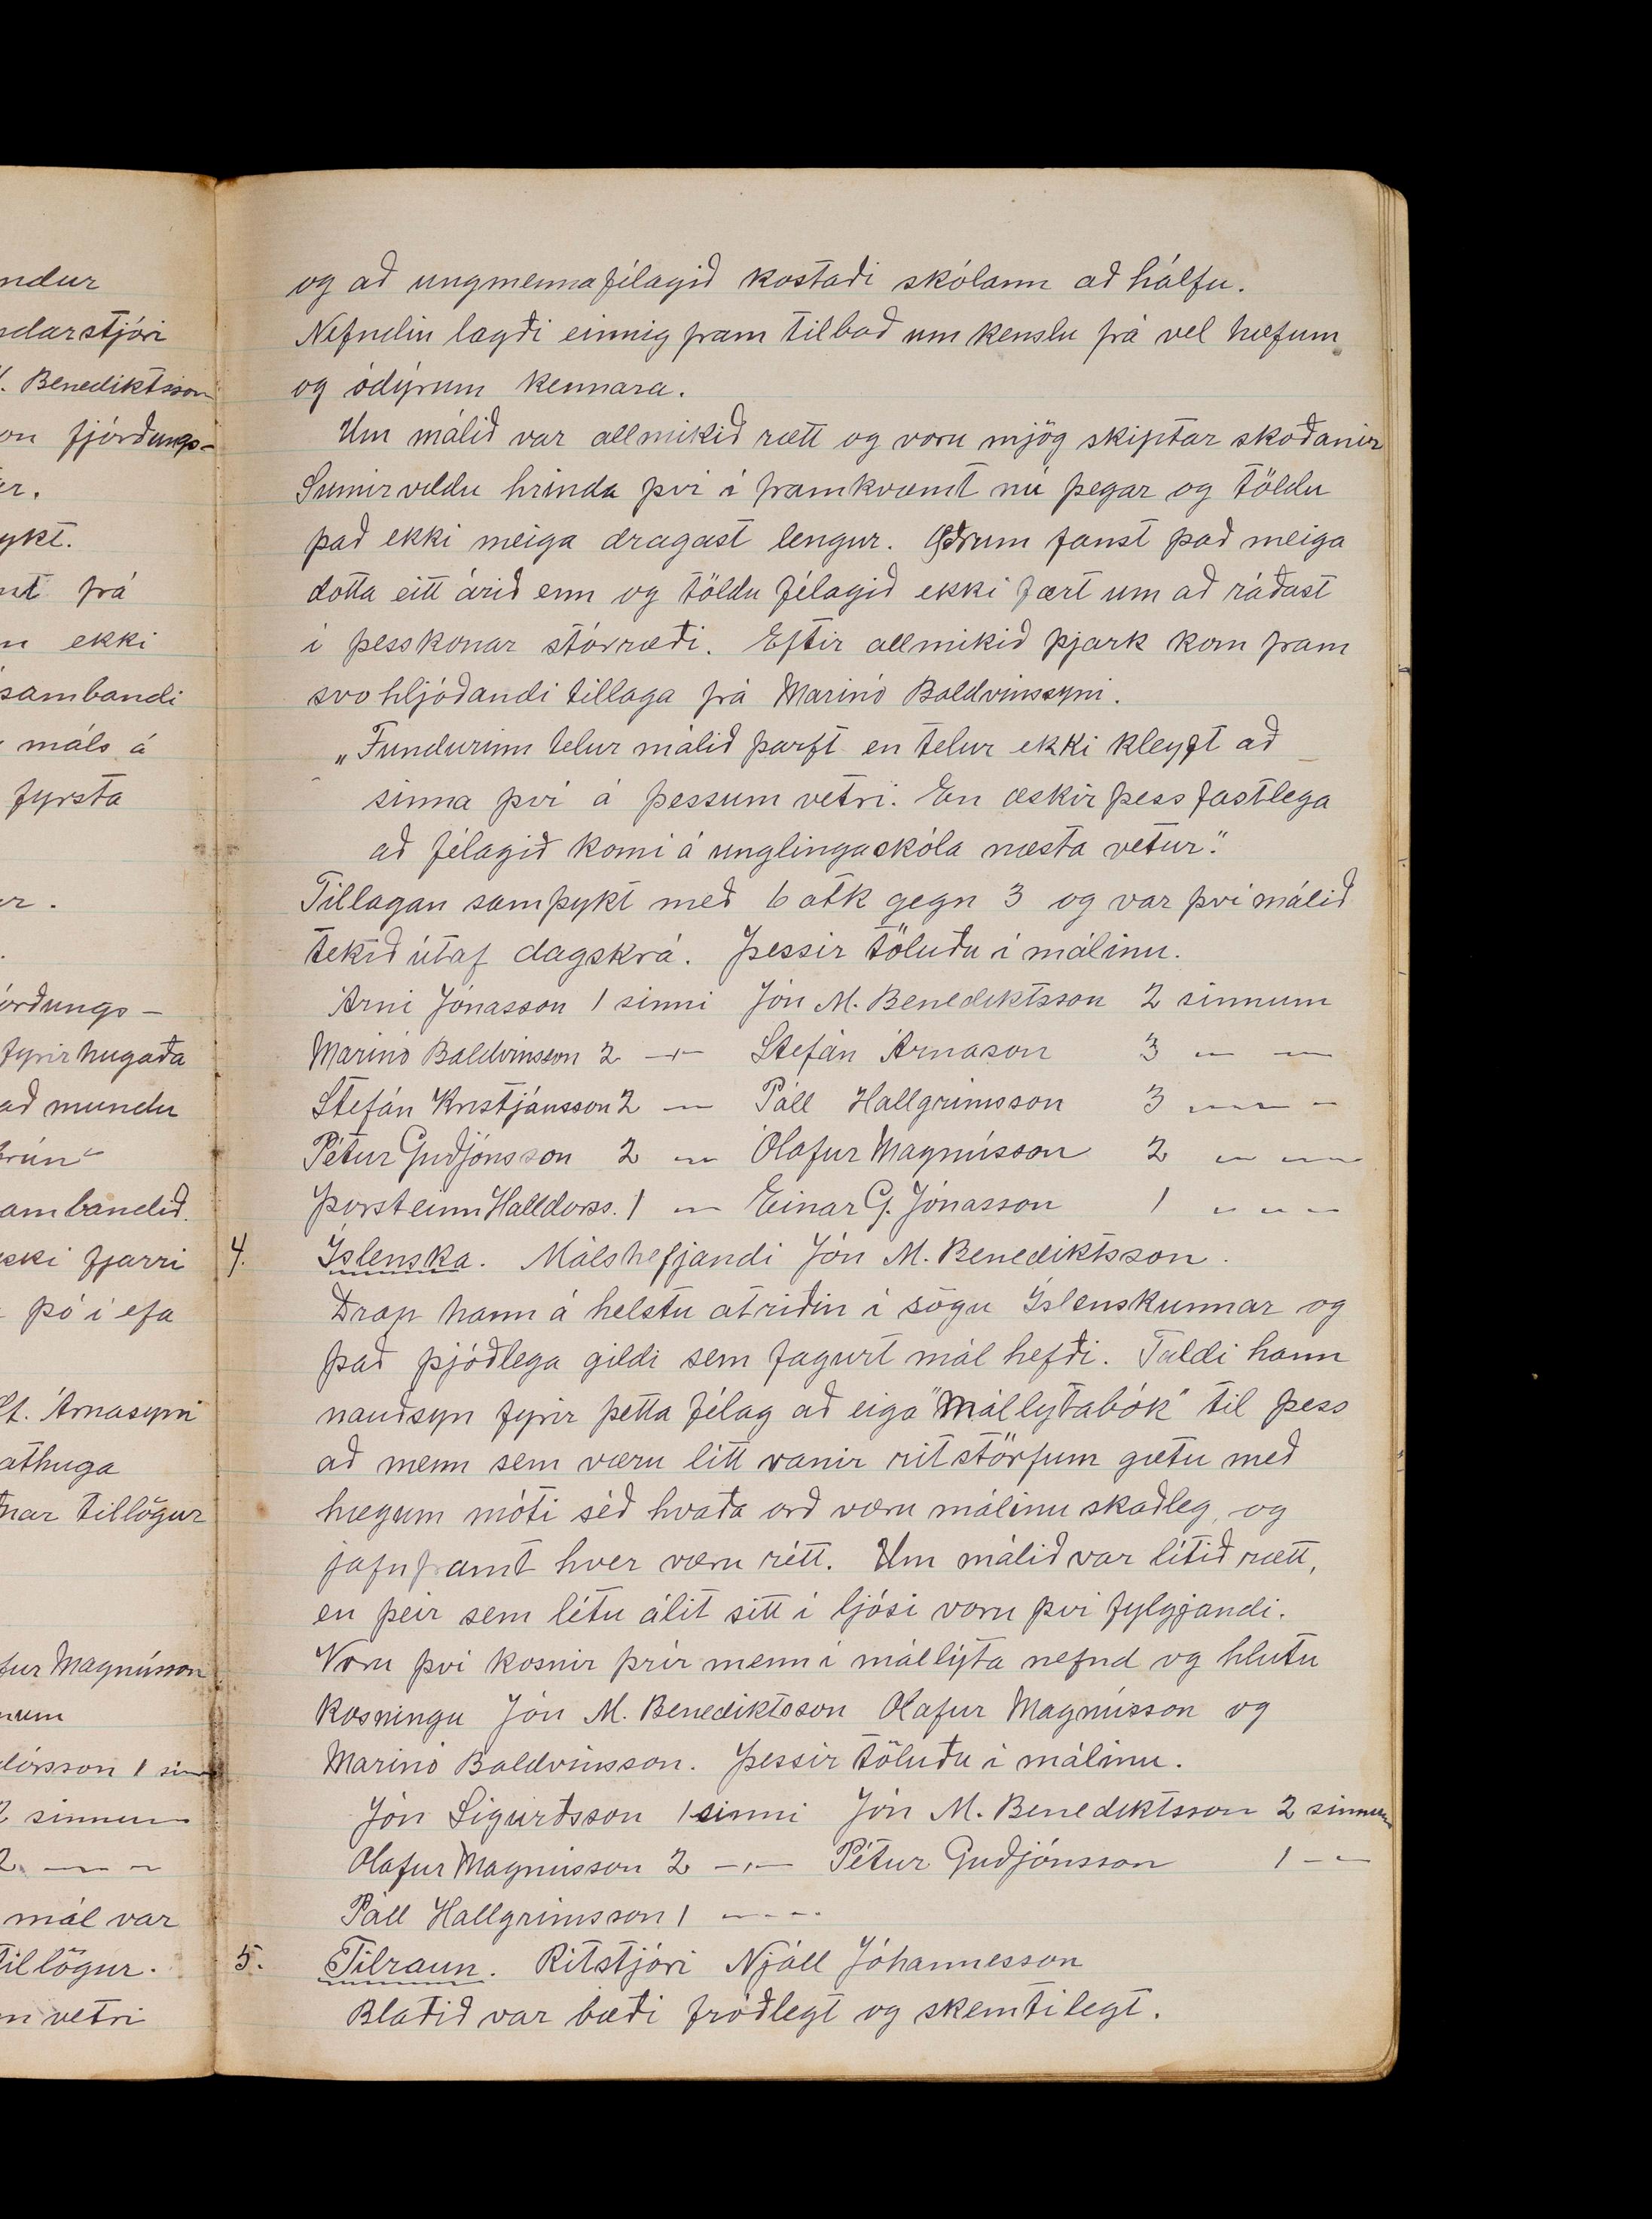 ndur
ndarstjóri
. Benediktsson
on fjórðungs-
er.
ykt.
mt frá
n ekki
sambandi
máls á
fyrsta
r.
órðungs-
fyrirhugaða
að mundu
ambandið.
ski fjarri
þó í efa
St. Árnasyni
athuga
nar tillögur
fur Magnússon
num
dórsson 1 sinni
2 sinnum
2 — —
mál var
tillögur.
n vetri
og að ungmennafélagið kostaði skólann að hálfu.
Nefndin lagði einnig fram tilboð um kenslu frá vel hæfum
og ódýrum kennara.
Um málið var allmikið rætt og voru mjög skiptar skoðanir
Sumir vildu hrinda því í framkvæmt nú þegar og töldu
það ekki meiga dragast lengur. Öðrum fanst það meiga
dotta eitt árið enn og töldu félagið ekki fært um að ráðast
í þesskonar stórræði. Eftir allmikið þjark kom fram
svohljóðandi tillaga frá Marinó Baldvinssyni.
„Fundurinn telur málið þarft en telur ekki kleyft að
sinna því á þessum vetri. En æskir þess fastlega
að félagið komi á unglingaskóla næsta vetur."
Tillagan samþykt með 6 atk gegn 3 og var því málið
tekið útaf dagskrá. Þessir töluðu í málinu.
Árni Jónasson 1 sinni Jón M. Benediktsson 2 sinnum
Marinó Baldvinsson 2 -"- Stefán Árnason 3 — —
Stefán Kristjánsson 2 — Páll Hallgrímsson 3 — —
Pétur Guðjónsson 2 — Ólafur Magnússon 2 — —
Þorsteinn Halldórss. 1 — Einar G. Jónasson 1 — —
4. Íslenska. Málshefjandi Jón M. Benediktsson.
Drap hann á helstu atriðin í sögu Íslenskunnar og
það þjóðlega gildi sem fagurt mál hefði. Taldi hann
nauðsyn fyrir þetta félag að eiga "mállýtabók" til þess
að menn sem væru lítt vanir ritstörfum gætu með
hægum móti séð hvaða orð væru málinu skaðleg, og
jafnframt hver væru rétt. Um málið var lítið rætt,
en þeir sem létu álit sitt í ljósi voru því fylgjandi.
Voru því kosnir þrír menn í mállýta nefnd og hlutu
kosningu Jón M. Benediktsson Ólafur Magnússon og
Marinó Baldvinsson. Þessir töluðu í málinu.
Jón Sigurðsson 1 sinni Jón M. Benediktsson 2 sinnum
Ólafur Magnússon 2 -"- Pétur Guðjónsson 1 — —
Páll Hallgrímsson 1 — —
5. Tilraun. Ritstjóri Njáll Jóhannesson
Blaðið var bæði fróðlegt og skemtilegt.